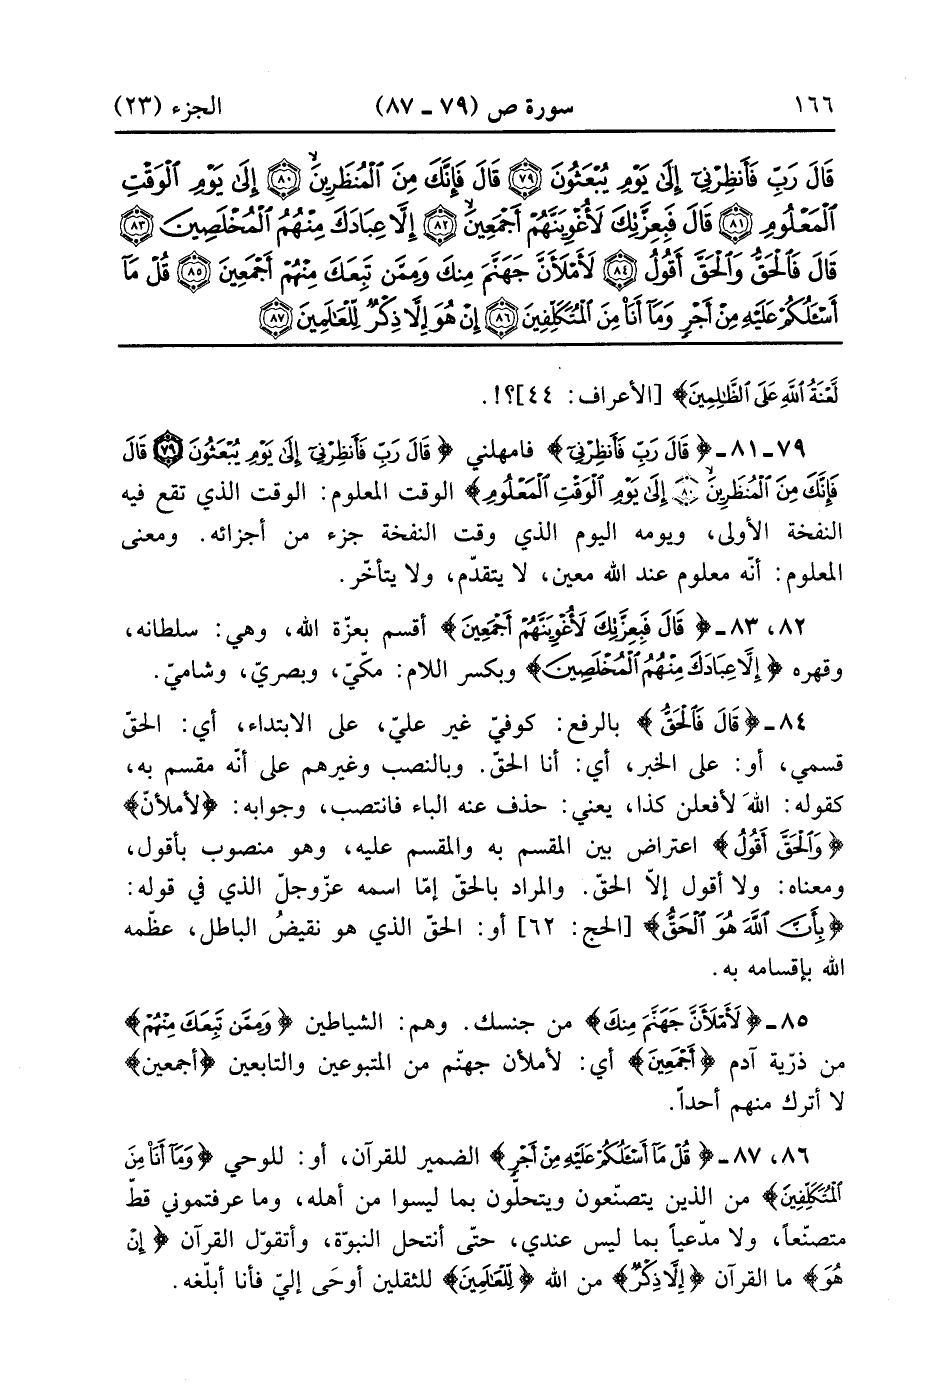 ١٦٦ سورة ص (٧٩ ـ ٨٧) الجزء (٢٣)
قَالَ رَبِّ فَأَنظِرْنِىٓ إِلَىٰ يَوْمِ يُبْعَثُونَ ﴿٧٩﴾ قَالَ فَإِنَّكَ مِنَ ٱلْمُنظَرِينَۙ ﴿٨٠﴾ إِلَىٰ يَوْمِ ٱلْوَقْتِ
ٱلْمَعْلُومِ ﴿٨١﴾ قَالَ فَبِعِزَّتِكَ لَأُغْوِيَنَّهُمْ أَجْمَعِينَۙ ﴿٨٢﴾ إِلَّا عِبَادَكَ مِنْهُمُ ٱلْمُخْلَصِينَ ﴿٨٣﴾
قَالَ فَٱلْحَقُّ وَٱلْحَقَّ أَقُولُ ﴿٨٤﴾ لَأَمْلَأَنَّ جَهَنَّمَ مِنكَ وَمِمَّن تَبِعَكَ مِنْهُمْ أَجْمَعِينَ ﴿٨٥﴾ قُلْ مَآ
أَسْـَٔلُكُمْ عَلَيْهِ مِنْ أَجْرٍ وَمَآ أَنَا۠ مِنَ ٱلْمُتَكَلِّفِينَ ﴿٨٦﴾ إِنْ هُوَ إِلَّا ذِكْرٌ لِّلْعَالَمِينَ ﴿٨٧﴾
لَعْنَةُ ٱللَّهِ عَلَى ٱلظَّالِمِينَ﴾ [الأعراف: ٤٤]؟!.
٧٩ ـ ٨١ ـ ﴿قَالَ رَبِّ فَأَنظِرْنِىٓ﴾ فامهلني ﴿قَالَ رَبِّ فَأَنظِرْنِىٓ إِلَىٰ يَوْمِ يُبْعَثُونَ ﴿٧٩﴾ قَالَ
فَإِنَّكَ مِنَ ٱلْمُنظَرِينَۙ ﴿٨٠﴾ إِلَىٰ يَوْمِ ٱلْوَقْتِ ٱلْمَعْلُومِ﴾ الوقت المعلوم: الوقت الذي تقع فيه
النفخة الأولى، ويومه اليوم الذي وقت النفخة جزء من أجزائه. ومعنى
المعلوم: أنّه معلوم عند الله معين، لا يتقدّم، ولا يتأخّر.
٨٢، ٨٣ ـ ﴿قَالَ فَبِعِزَّتِكَ لَأُغْوِيَنَّهُمْ أَجْمَعِينَ﴾ أقسم بعزّة الله، وهي: سلطانه،
وقهره ﴿إِلَّا عِبَادَكَ مِنْهُمُ ٱلْمُخْلَصِينَ﴾ وبكسر اللام: مكّيّ، وبصريّ، وشاميّ.
٨٤ ـ ﴿قَالَ فَٱلْحَقُّ﴾ بالرفع: كوفيّ غير عليّ، على الابتداء، أي: الحقّ
قسمي، أو: على الخبر، أي: أنا الحقّ. وبالنصب وغيرهم على أنّه مقسم به،
كقوله: اللهَ لأفعلن كذا، يعني: حذف عنه الباء فانتصب، وجوابه: ﴿لأملأنّ﴾
﴿وَٱلْحَقَّ أَقُولُ﴾ اعتراض بين المقسم به والمقسم عليه، وهو منصوب بأقول،
ومعناه: ولا أقول إلّا الحقّ. والمراد بالحقّ إمّا اسمه عزّوجلّ الذي في قوله:
﴿بِأَنَّ ٱللَّهَ هُوَ ٱلْحَقُّ﴾ [الحج: ٦٢] أو: الحقّ الذي هو نقيضُ الباطل، عظّمه
الله بإقسامه به.
٨٥ ـ ﴿لَأَمْلَأَنَّ جَهَنَّمَ مِنكَ﴾ من جنسك. وهم: الشياطين ﴿وَمِمَّن تَبِعَكَ مِنْهُمْ﴾
من ذرّية آدم ﴿أَجْمَعِينَ﴾ أي: لأملأن جهنّم من المتبوعين والتابعين ﴿أجمعين﴾
لا أترك منهم أحداً.
٨٦، ٨٧ ـ ﴿قُلْ مَآ أَسْـَٔلُكُمْ عَلَيْهِ مِنْ أَجْرٍ﴾ الضمير للقرآن، أو: للوحي ﴿وَمَآ أَنَا۠ مِنَ
ٱلْمُتَكَلِّفِينَ﴾ من الذين يتصنّعون ويتحلّون بما ليسوا من أهله، وما عرفتموني قطّ
متصنّعاً، ولا مدّعياً بما ليس عندي، حتّى أنتحل النبوّة، وأتقوّل القرآن ﴿إِنْ
هُوَ﴾ ما القرآن ﴿إِلَّا ذِكْرٌ﴾ من الله ﴿لِّلْعَالَمِينَ﴾ للثقلين أوحَى إليّ فأنا أبلّغه.